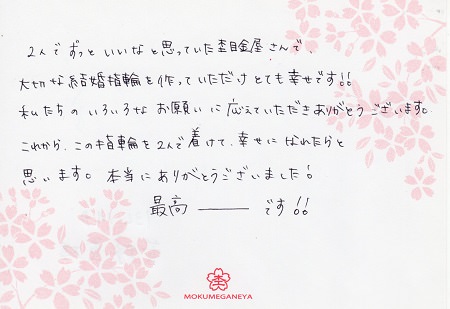 2人でずっといいなと思っていた杢目金屋さんで、
大切な結婚指輪を作っていただけとても幸せです!!
私たちのいろいろなお願いに応えていただきありがとうございます。
これから、この指輪を2人で着けて、幸せになれたらと
思います。本当にありがとうございました!
最高———です!!
杢
MOKUMEGANEYA